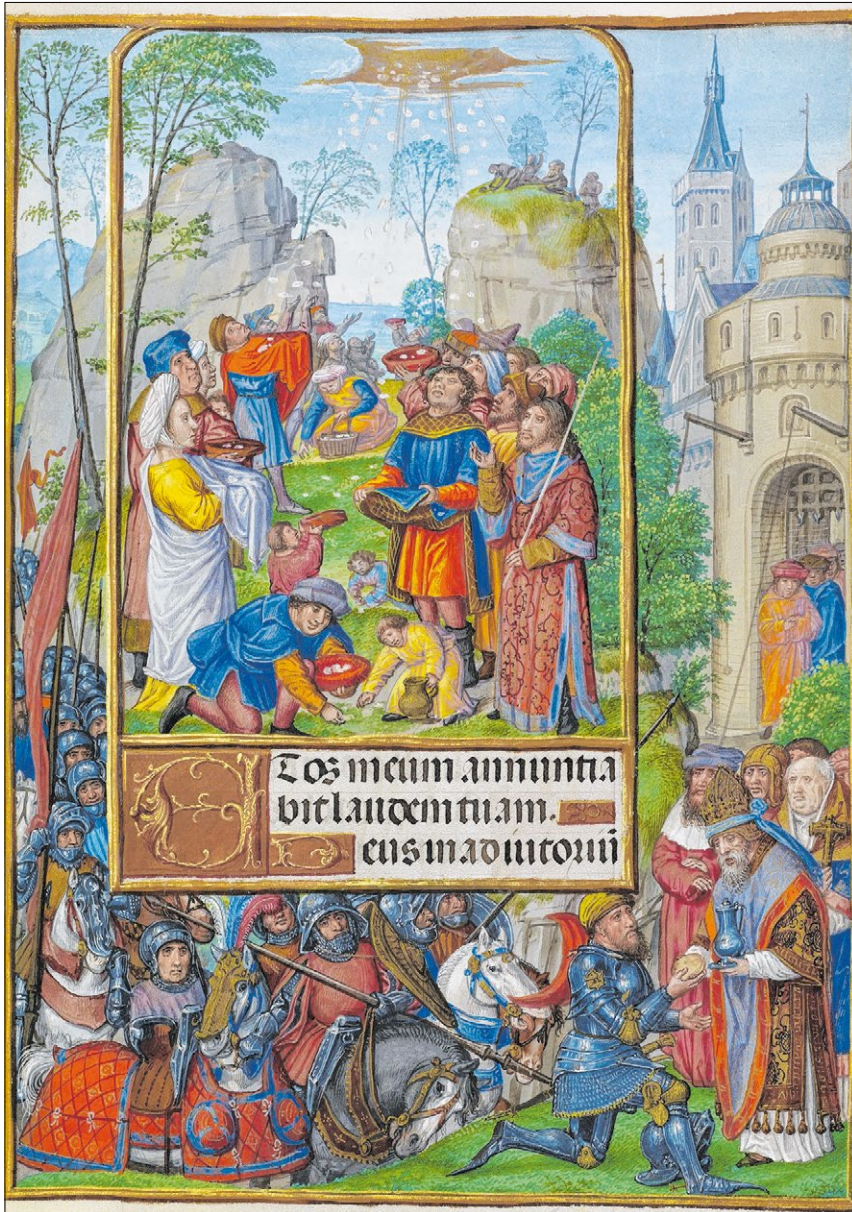 Et os meum annuntia
bit laudem tuam.
Deus in adiutoriū